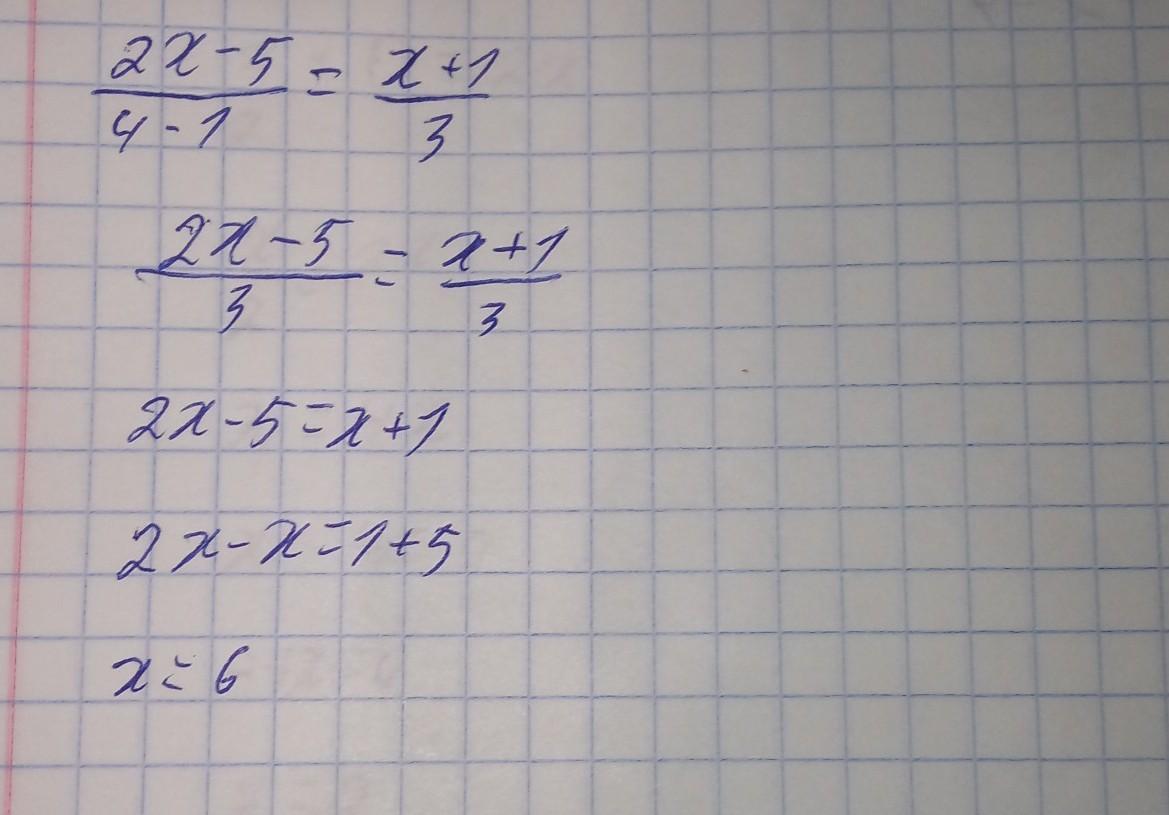 (2x-5)/(4-1) = (x+1)/3
(2x-5)/3 = (x+1)/3
2x-5=x+1
2x-x=1+5
x=6